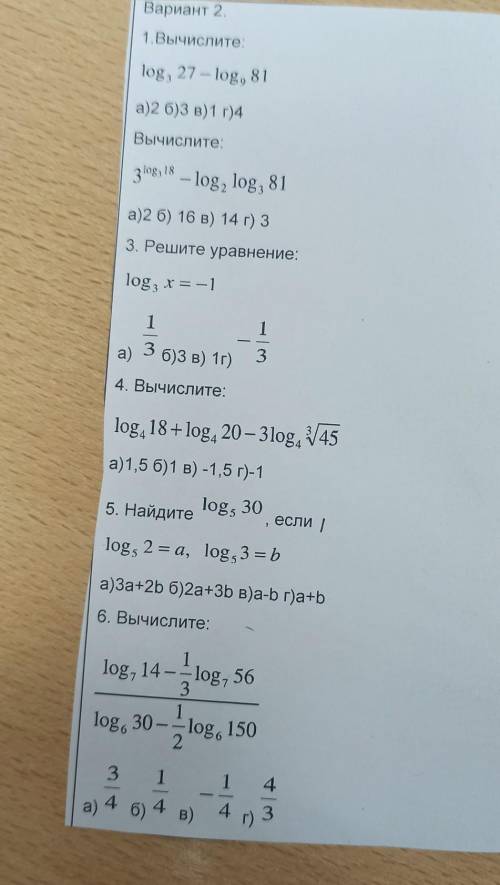 Вариант 2.
1.Вычислите:
log₃ 27 – log₉ 81
а)2 б)3 в)1 г)4
Вычислите:
3^(log₃ 18) – log₂ log₃ 81
а)2 б) 16 в) 14 г) 3
3. Решите уравнение:
log₃ x = –1
а) 1/3 б)3 в) 1г) –1/3
4. Вычислите:
log₄ 18 + log₄ 20 – 3log₄ ∛45
а)1,5 б)1 в) -1,5 г)-1
5. Найдите log₅ 30 , если
log₅ 2 = a, log₅ 3 = b
а)3a+2b б)2a+3b в)a-b г)a+b
6. Вычислите:
(log₇ 14 – 1/3 log₇ 56) / (log₆ 30 – 1/2 log₆ 150)
а) 3/4 б) 1/4 в) –1/4 г) 4/3